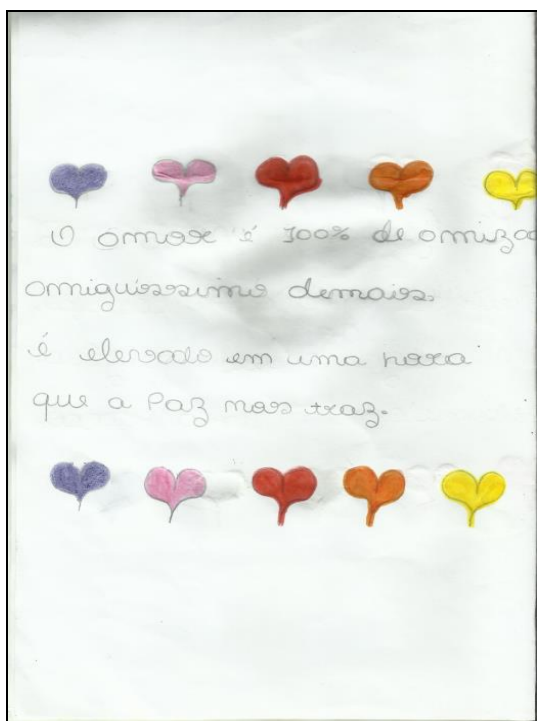 O amor é 100% de amizad
amiguissimo demais.
é elevado em uma hora
que a Paz nos traz.